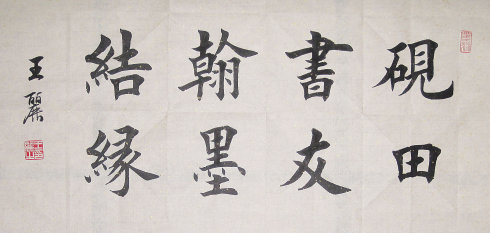 硯田
書友
翰墨
結縁
王麗